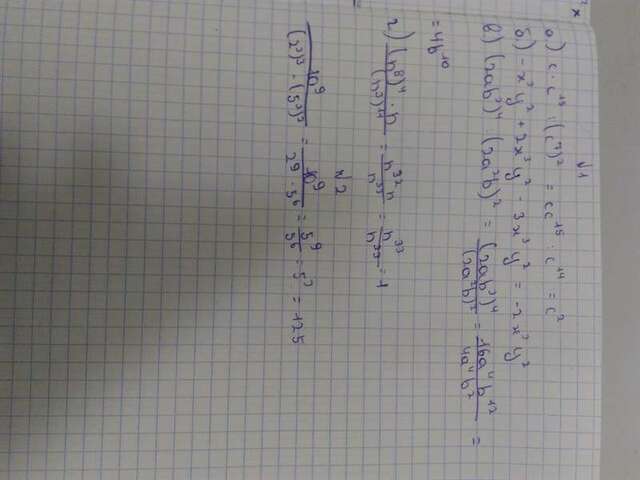 №1
а) c · c¹⁵ : (c⁷)² = cc¹⁵ : c¹⁴ = c²
б) -x³y² + 2x³y² - 3x³y² = -2x³y²
в) (2ab³)⁴ : (2a²b)² = (2ab³)⁴/(2a²b)² = 16a⁴b¹²/4a⁴b² =
= 4b¹⁰
г) (n⁸)⁴ · n/(n³)¹¹ = n³²n/n³³ = n³³/n³³ = 1
№2
10⁹/(2³)³ · (5²)³ = 10⁹/2⁹ · 5⁶ = 5⁹/5⁶ = 5³ = 125